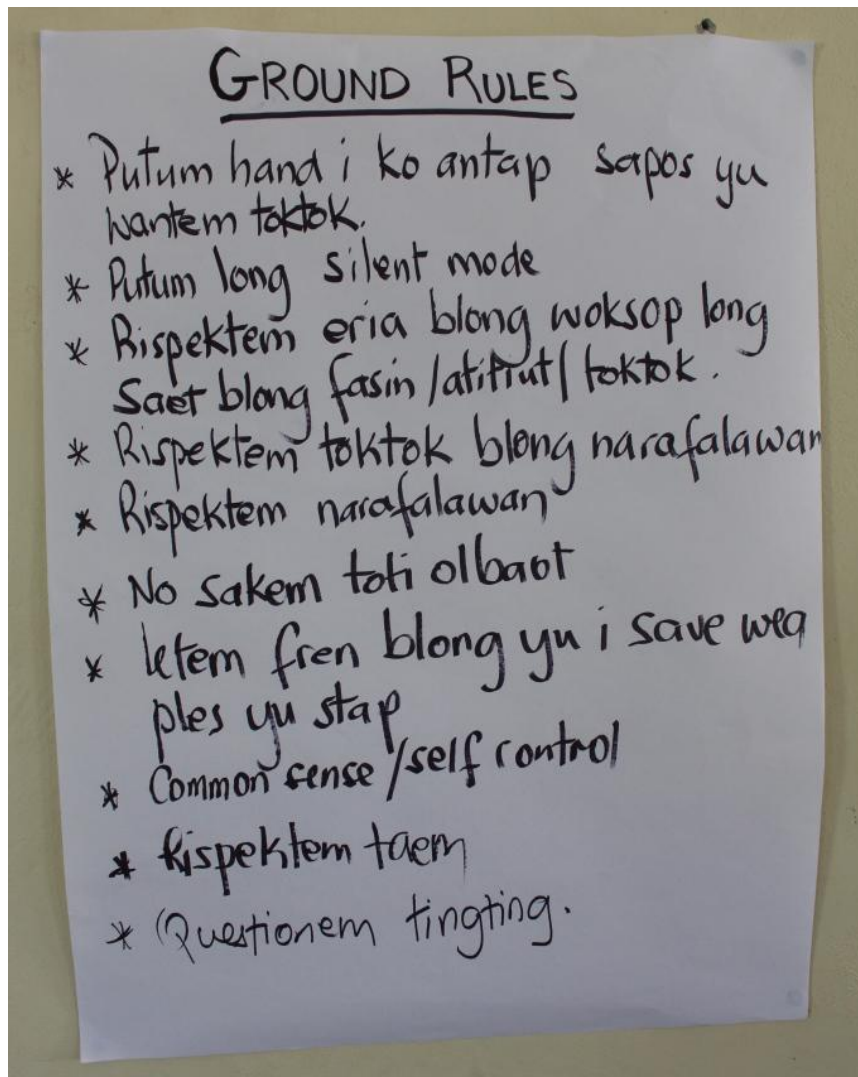 GROUND RULES
* Putum hand i ko antap sapos yu
wantem toktok.
* Putum long silent mode
* Rispektem eria blong woksop long
saet blong fasin/atitiut/toktok.
* Rispektem toktok blong narafalawan
* Rispektem narafalawan
* No sakem toti olbaot
* letem fren blong yu i save wea
ples yu stap
* Common sense/self control
* Rispektem taem
* Questionem tingting.